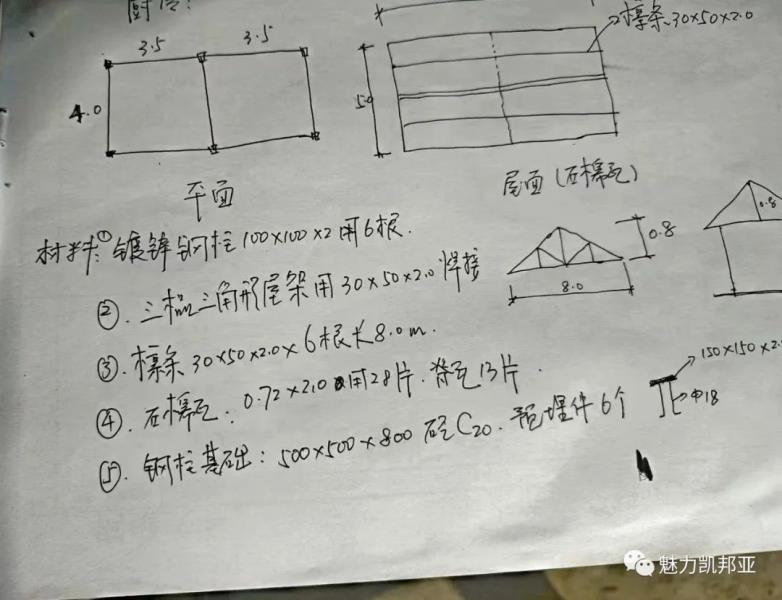 厨房:
3.5 3.5
4.0
平面
檩条 30×50×2.0
5.0
屋面(石棉瓦)
材料:①镀锌钢柱100×100×2用6根.
②.三榀三角形屋架用30×50×2.0焊接
0.8
8.0
0.8
③.檩条30×50×2.0×6根长8.0m.
④.石棉瓦:0.72×2.0用28片.脊瓦13片.
⑤.钢柱基础:500×500×800砼C20.预埋件6个
150×150×2.0
Φ18
魅力凯邦亚